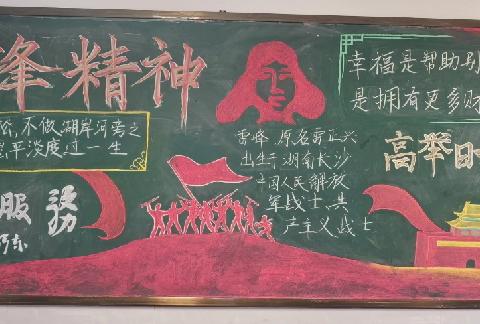 锋精神
不做湖岸河旁之
平淡度过一生
服务
雷峰 原名雷正兴
出生于湖南长沙
中国人民解放
军战士、共
产主义战士
幸福是帮助别
是拥有更多财
高举